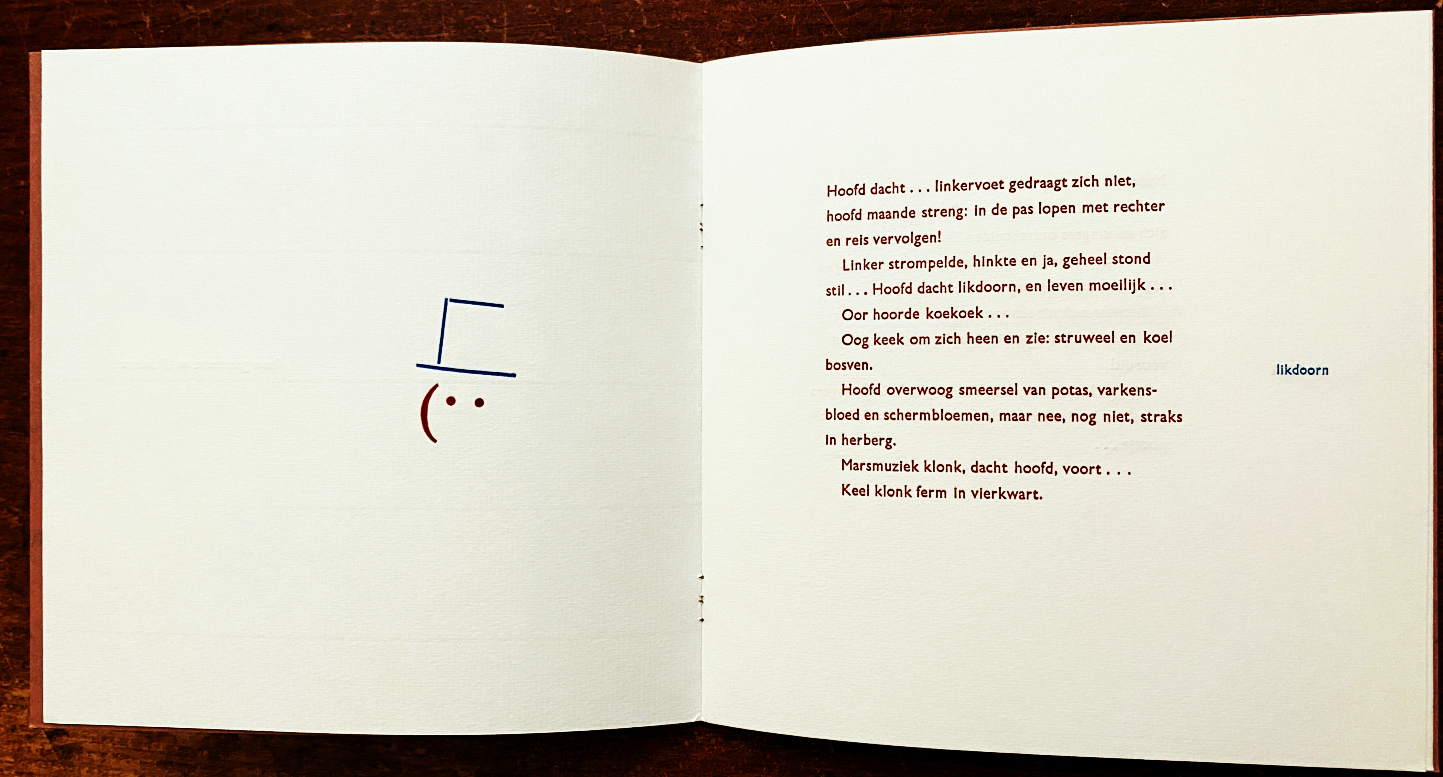 Hoofd dacht . . . linkervoet gedraagt zich niet,
hoofd maande streng: in de pas lopen met rechter
en reis vervolgen!
Linker strompelde, hinkte en ja, geheel stond
stil . . . Hoofd dacht likdoorn, en leven moeilijk . . .
Oor hoorde koekoek . . .
Oog keek om zich heen en zie: struweel en koel
bosven.
Hoofd overwoog smeersel van potas, varkens-
bloed en schermbloemen, maar nee, nog niet, straks
in herberg.
Marsmuziek klonk, dacht hoofd, voort . . .
Keel klonk ferm in vierkwart.
likdoorn